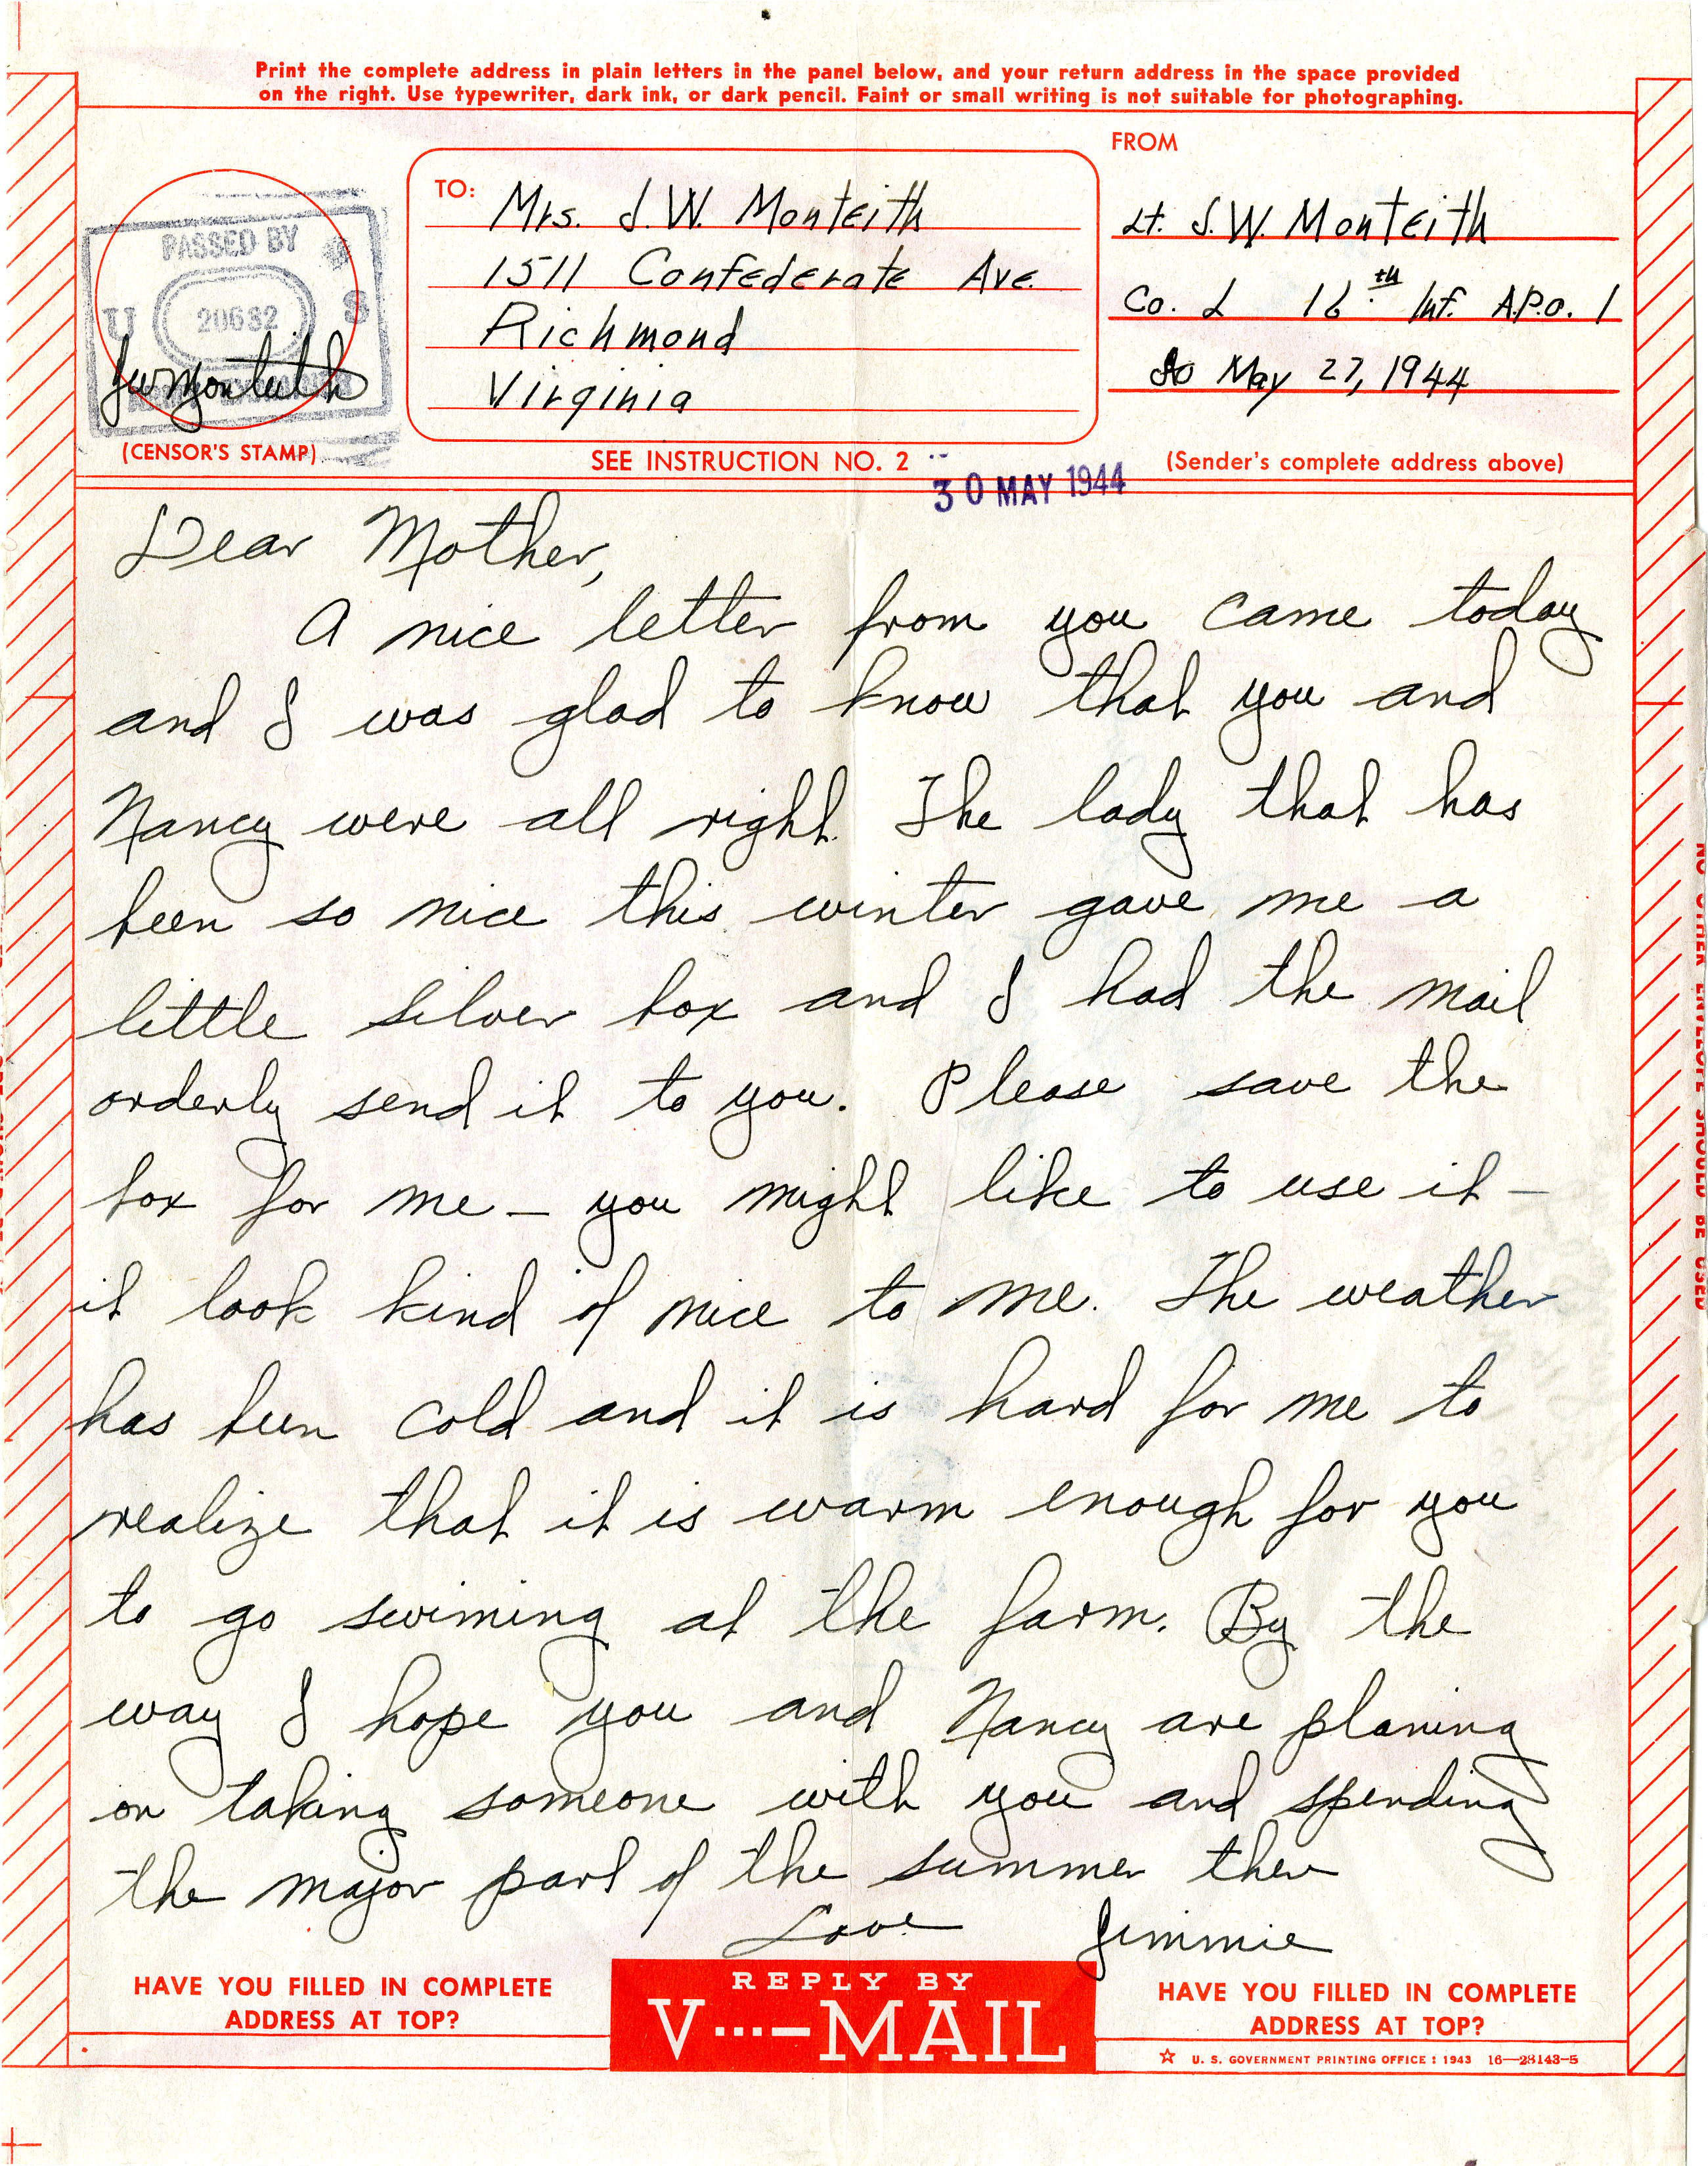 Print the complete address in plain letters in the panel below, and your return address in the space provided
on the right. Use typewriter, dark ink, or dark pencil. Faint or small writing is not suitable for photographing.
PASSED BY
U S
20682
JWMonteith
(CENSOR'S STAMP)
TO: Mrs. J.W. Monteith
1511 Confederate Ave.
Richmond
Virginia
SEE INSTRUCTION NO. 2
FROM
Lt. J.W. Monteith
Co. L 16th Inf. A.P.O. 1
May 27, 1944
(Sender's complete address above)
30 MAY 1944
Dear Mother,
A nice letter from you came today
and I was glad to know that you and
Nancy were all right. The lady that has
been so nice this winter gave me a
little silver box and I had the mail
orderly send it to you. Please save the
box for me — you might like to use it —
it look kind of nice to me. The weather
has been cold and it is hard for me to
realize that it is warm enough for you
to go swiming at the farm. By the
way I hope you and Nancy are planing
on taking someone with you and spending
the major part of the summer ther
Love Jimmie
HAVE YOU FILLED IN COMPLETE
ADDRESS AT TOP?
REPLY BY
V···—MAIL
HAVE YOU FILLED IN COMPLETE
ADDRESS AT TOP?
☆ U. S. GOVERNMENT PRINTING OFFICE : 1943 16—28143-5
NO OTHER ENVELOPE SHOULD BE USED